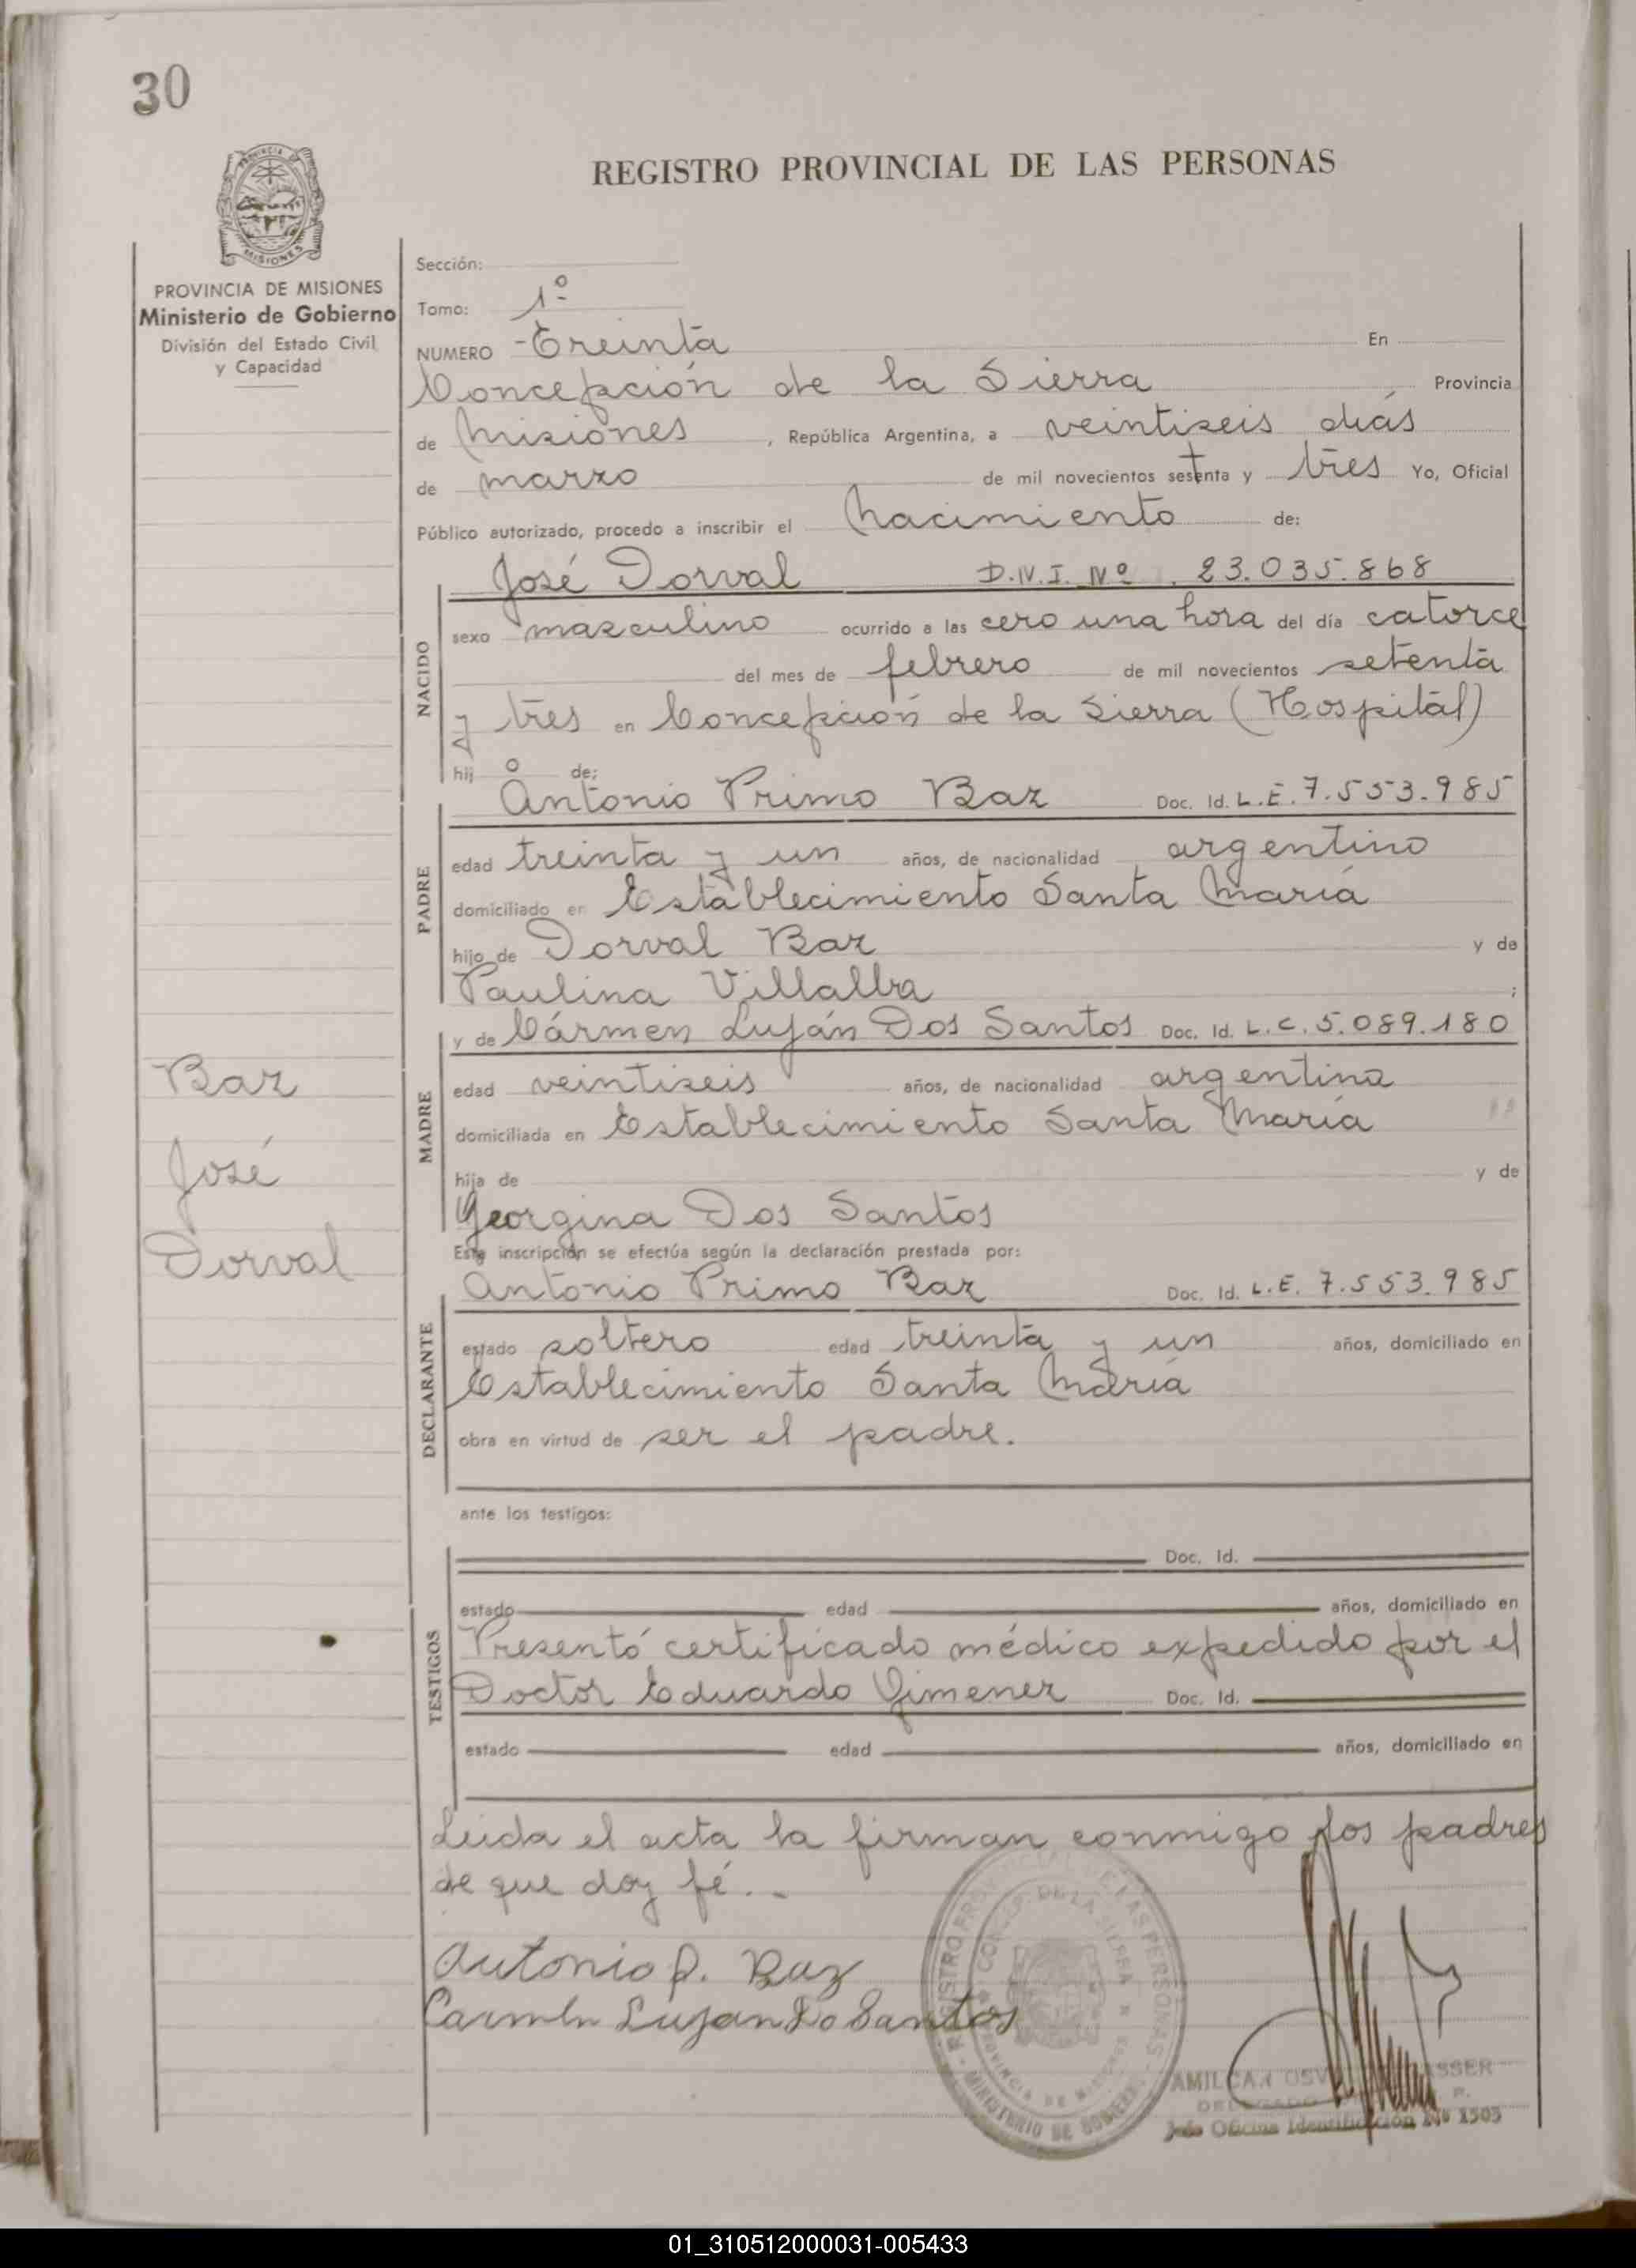 30
REGISTRO PROVINCIAL DE LAS PERSONAS
PROVINCIA DE MISIONES
Ministerio de Gobierno
División del Estado Civil
y Capacidad
Sección:
Tomo: 1º
NUMERO - Treinta En
Concepción de la Sierra Provincia
de Misiones , República Argentina, a veintiseis días
de marzo de mil novecientos setenta y tres Yo, Oficial
Público autorizado, procedo a inscribir el Nacimiento de:
José Dorval D.N.I. Nº 23.035.868
NACIDO
sexo masculino ocurrido a las cero una hora del día catorce
del mes de febrero de mil novecientos setenta
y tres en Concepción de la Sierra (Hospital)
hij o de:
Antonio Primo Baz Doc. Id. L.E. 7.553.985
PADRE
edad treinta y un años, de nacionalidad argentino
domiciliado en Establecimiento Santa María
hijo de Dorval Baz y de
Paulina Villalba ;
y de Cármen Luján Dos Santos Doc. Id. L.C. 5.089.180
MADRE
edad veintiseis años, de nacionalidad argentina
domiciliada en Establecimiento Santa María
hija de y de
Georgina Dos Santos
Baz
José
Dorval
Esta inscripción se efectúa según la declaración prestada por:
Antonio Primo Baz Doc. Id. L.E. 7.553.985
DECLARANTE
estado soltero edad treinta y un años, domiciliado en
Establecimiento Santa María
obra en virtud de ser el padre.
ante los testigos:
Doc. Id.
TESTIGOS
estado edad años, domiciliado en
Presentó certificado médico expedido por el
Doctor Eduardo Gimenez Doc. Id.
estado edad años, domiciliado en
Leida el acta la firman conmigo los padres
de que doy fé. -
Antonio P. Baz
Carmen Lujan Do Santos
REGISTRO PROVINCIAL DE LAS PERSONAS
CONCEP. DE LA SIERRA
PROVINCIA DE MISIONES
MINISTERIO DE GOBIERNO
AMILCAR
DELEGADO
Jefe Oficina Identificación Nº 1503
01_310512000031-005433